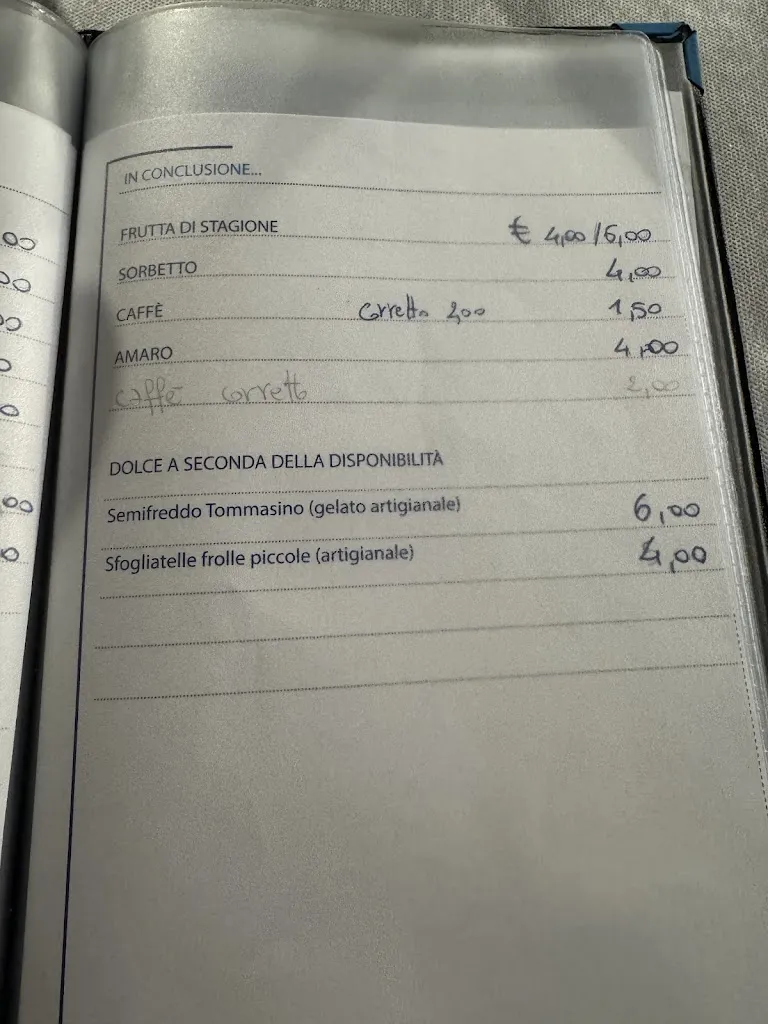 IN CONCLUSIONE...
FRUTTA DI STAGIONE € 4,00/6,00
SORBETTO 4,00
CAFFÈ Corretto 2,00 1,50
AMARO 4,00
caffè corretto 2,00
DOLCE A SECONDA DELLA DISPONIBILITÀ
Semifreddo Tommasino (gelato artigianale) 6,00
Sfogliatelle frolle piccole (artigianale) 4,00